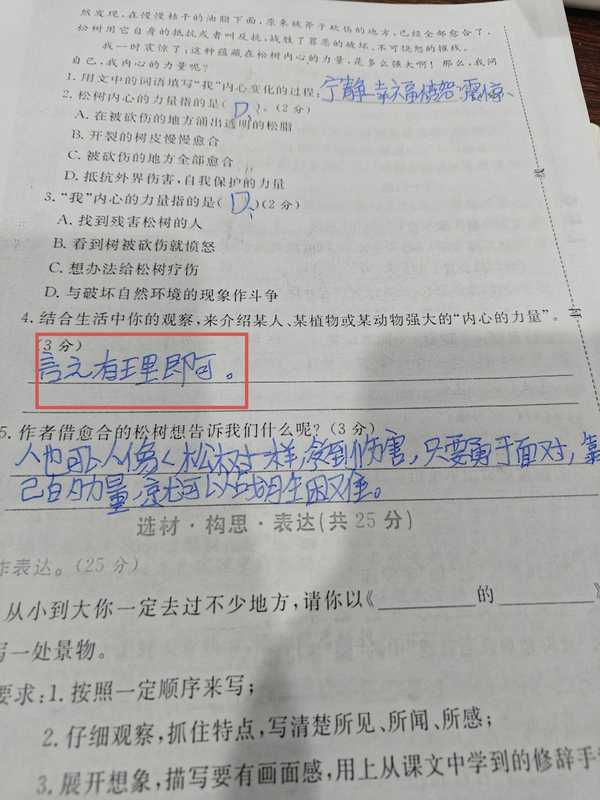 然发现,在慢慢枯干的油脂下面,原来被斧子砍伤的地方,已经全部愈合了。
松树用它自身的抵抗或者叫反抗,战胜了罪恶的破坏、不可饶恕的摧残。
我一时震惊了,这种蕴藏在松树内心的力量,是多么强大啊!那么,我问
自己,我内心的力量呢?
1. 用文中的词语填写“我”内心变化的过程:宁静 幸福 愤怒 震惊、
2. 松树内心的力量指的是( D、)。(2 分)
A. 在被砍伤的地方涌出透明的松脂
B. 开裂的树皮慢慢愈合
C. 被砍伤的地方全部愈合
D. 抵抗外界伤害,自我保护的力量
3. “我”内心的力量指的是( D、)(2 分)
A. 找到残害松树的人
B. 看到树被砍伤就愤怒
C. 想办法给松树疗伤
D. 与破坏自然环境的现象作斗争
4. 结合生活中你的观察,来介绍某人、某植物或某动物强大的“内心的力量”。
(3 分)
言之有理即可。
5. 作者借愈合的松树想告诉我们什么呢?(3 分)
人也可以像松树一样,受到伤害,只要勇于面对,靠
己的力量,就可以战胜困难。
选材·构思·表达(共 25 分)
作表达。(25 分)
从小到大你一定去过不少地方,请你以《 的
写一处景物。
要求:1. 按照一定顺序来写;
2. 仔细观察,抓住特点,写清楚所见、所闻、所感;
3. 展开想象,描写要有画面感,用上从课文中学到的修辞手
线